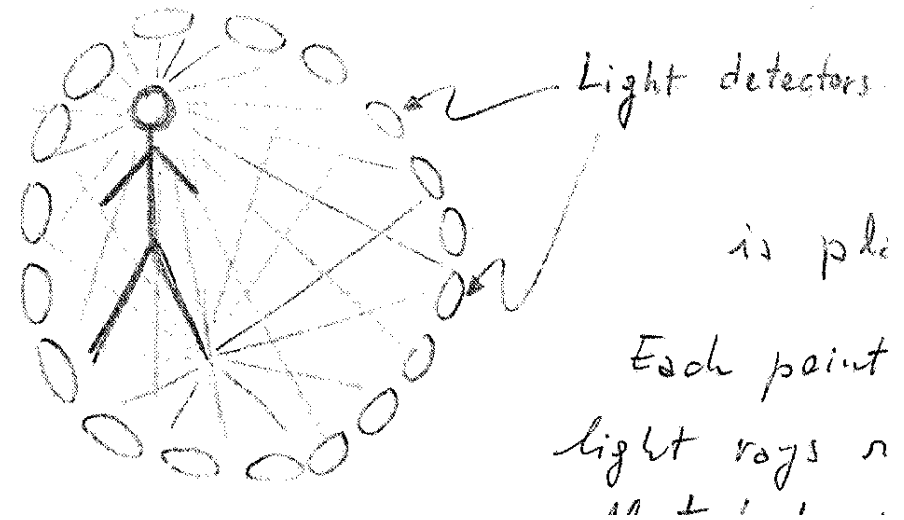 Light detectors
is
Each point
light rays